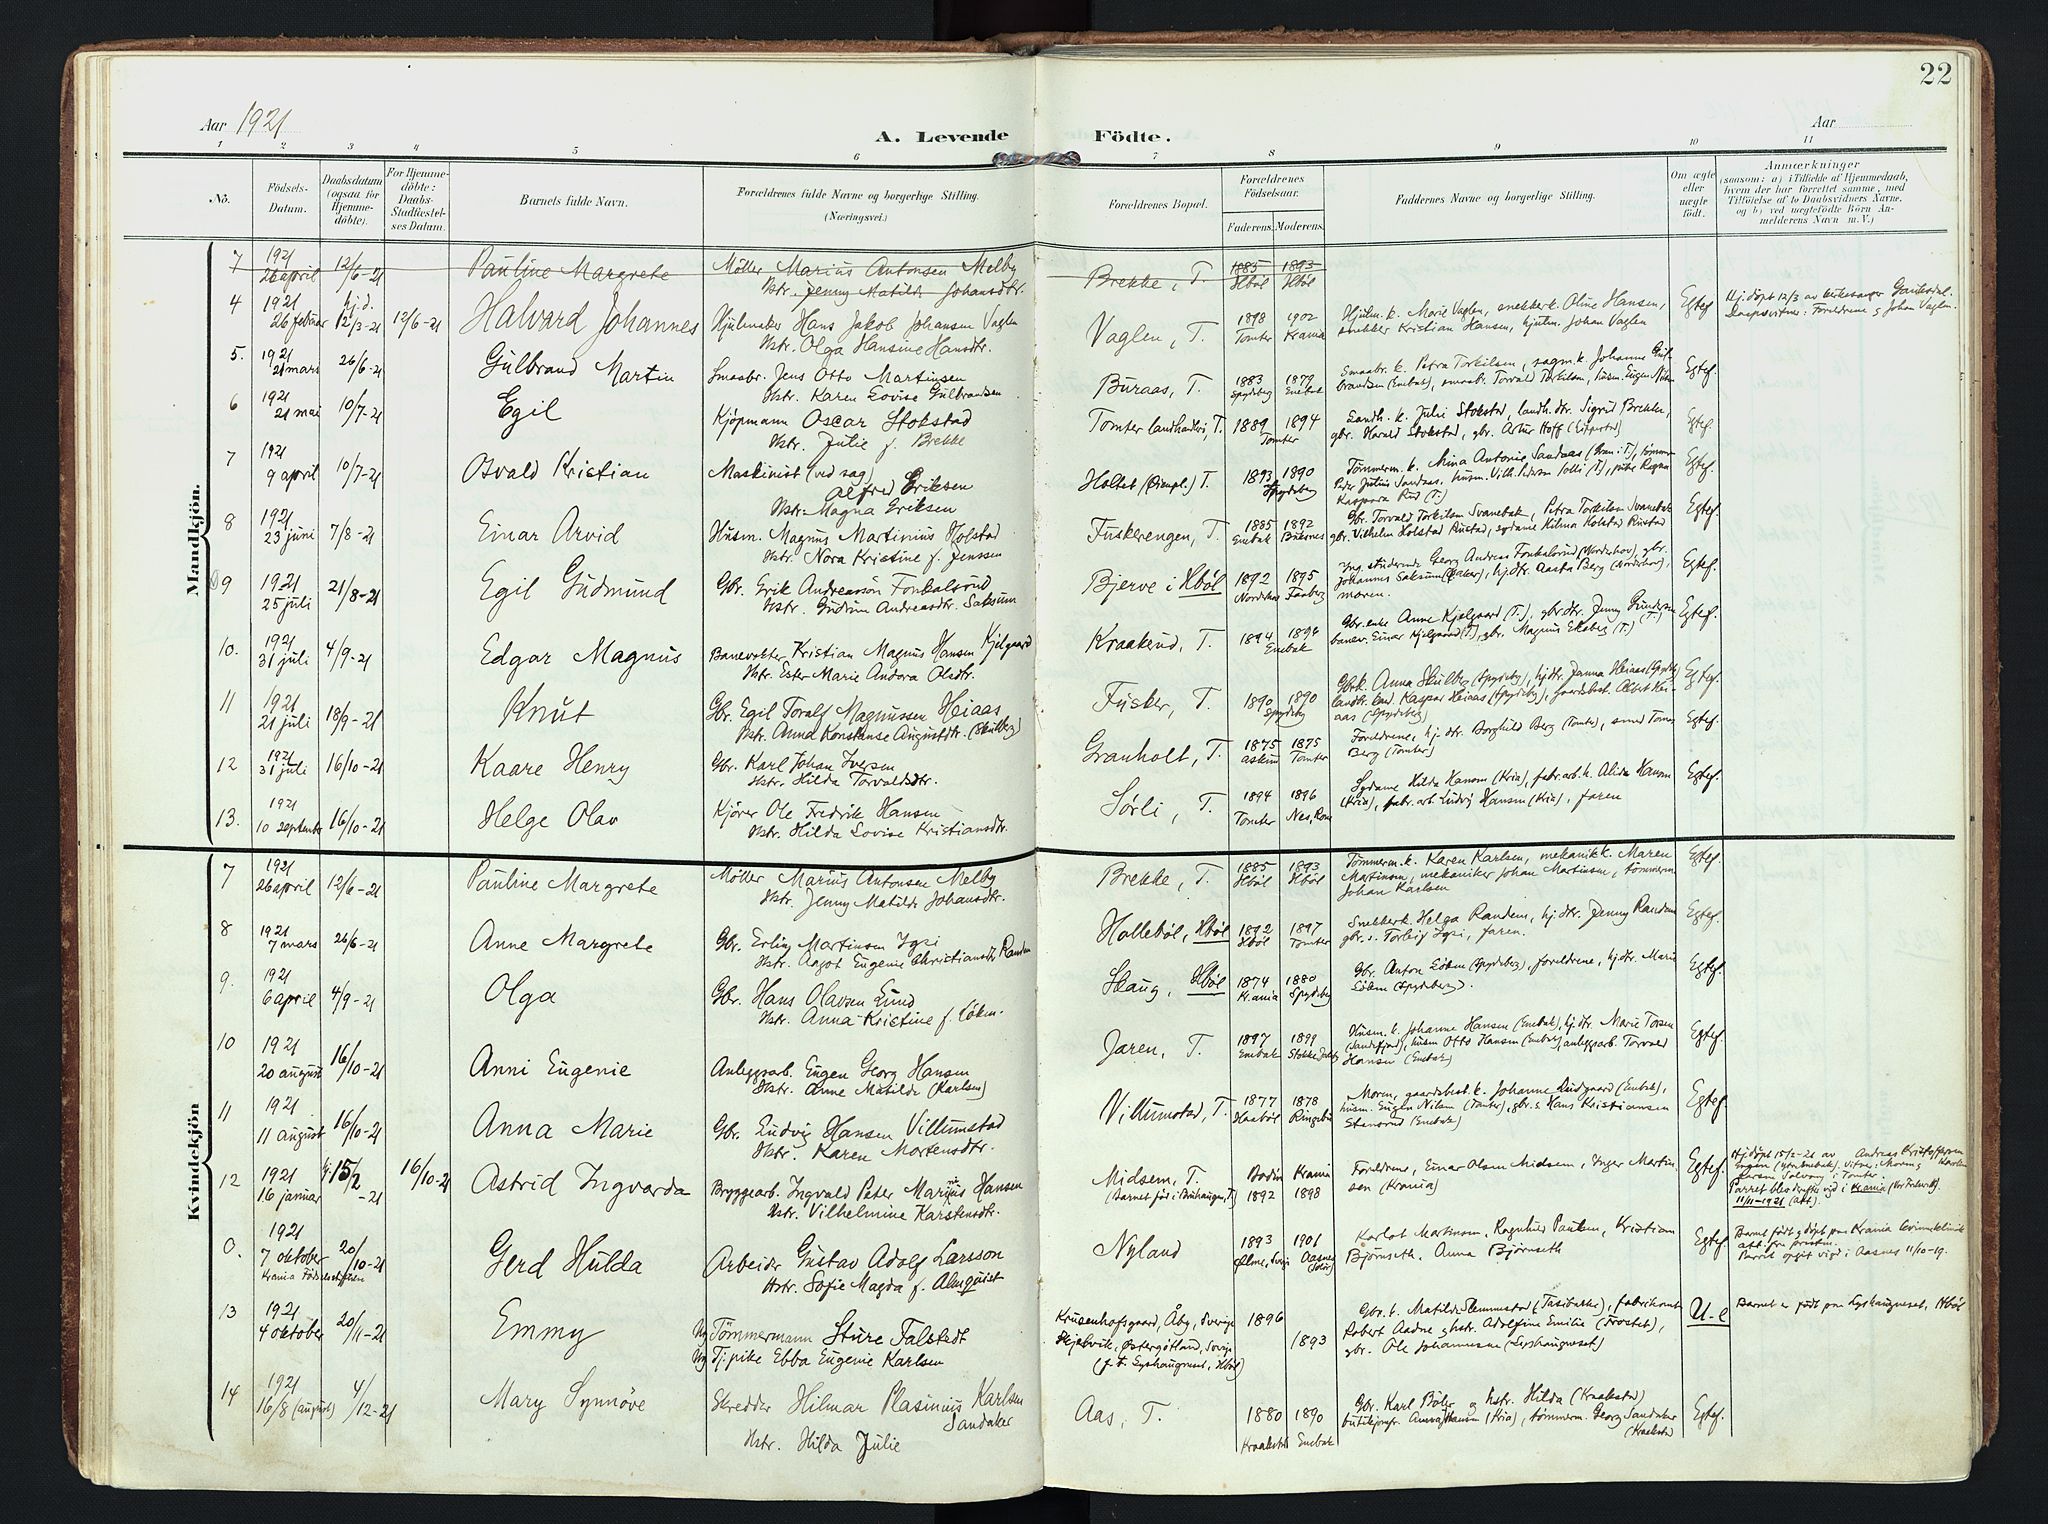 22
Aar 1921
A. Levende Födte.
Aar
1 2 3 4 5 6 7 8 9 10 11
No. Födsels-Datum. Daabsdatum (ogsaa for Hjemme-döbte). For Hjemme-döbte: Daabs-Stadfæstel-ses Datum. Barnets fulde Navn. Forældrenes fulde Navne og borgerlige Stilling. (Næringsvei.) Forældrenes Bopæl. Forældrenes Födselsaar. Faderens. Moderens. Faddernes Navne og borgerlige Stilling. Om ægte eller uægte födt. Anmærkninger (saasom: a) i Tilfælde af Hjemmedaab, hvem der har forrettet samme, med Tilföielse af to Daabsvidners Navne, og b) ved uægtefödte Börn An-melderens Navn m. V.)
Mandkjön.
7 1921 26 april 12/6-21 Pauline Margrete Möller Marius Antonsen Melby Hstr. Jenny Matilde Johansdtr. Brekke, T. 1885 Hböl 1893 Hböl
4 1921 26 februar hj.d. 12/3-21 12/6-21 Halvard Johannes Hjulmaker Hans Jakob Johansen Vaglen Hstr. Olga Hansine Hansdtr. Vaglen, T. 1898 Tomter 1902 Krania Hjulm. k. Marie Vaglen, snekker k. Oline Hansen, snekker Kristian Hansen, hjulm. Johan Vaglen Egtef. Hj. döpt 12/3 av kirkesanger Gauksdal. Daapsvitner: Foreldrene og Johan Vaglen.
5. 1921 21 mars 26/6-21 Gulbrand Martin Smaabr. Jens Otto Martinsen Hstr. Karen Lovise Gulbrandsen Buraas, T. 1883 Spydeberg 1879 Enebak Smaabr. k. Petra Torkilsen, sagm. k. Johanne Gulbrandsen (Enebak), smaabr. Torvald Torkilsen, husm. Eugen Nilsen Egtef.
6 1921 21 mai 10/7-21 Egil Kjöpmann Oscar Stokstad Hstr. Julie f. Brekke Tomter landhandleri, T. 1889 1894 Tomter Landh. k. Julie Stokstad, landh. dtr. Sigrid Brekke, gbr. Harald Stokstad, gbr. Artur Hoff Egtef.
7 1921 9 april 10/7-21 Osvald Kristian Maskinist (ved sag) Alfred Eriksen Hstr. Magna Eriksen Holtet T. 1893 1890 Spydeberg Tömmerm. k. Mina Antonie Sandaas, tömmerm. Peder Julius Sandaas, husm. Vilh. Pedersen Solli (T.), pike Ragna Kaspara Rud (T.) Egtef.
8 1921 23 juni 7/8-21 Einar Arvid Husm. Magnus Martinius Holstad Hstr. Nora Kristine f. Jenssen Fuskerengen, T. 1885 Enebak 1892 Buksnes Gbr. Torvald Torkilsen Svanebak, Petra Torkilsen Svanebak gbr. Vilhelm Holstad Rustad, sydame Hilma Holstad Rustad Egtef.
9 1921 25 juli 21/8-21 Egil Gudmund Gbr. Erik Andreassön Fonkalsrud Hstr. Gudrun Andreasdtr. Saksum Bjerve i Hböl 1892 Nordehov 1895 Faaberg Ing. studerende Georg Andreas Fonkalsrud (Nordehov), gbr. Johannes Saksum, hj. dtr. Aasta Berg (Nordehov), moren. Egtef.
10. 1921 31 juli 4/9-21 Edgar Magnus Banevokter Kristian Magnus Hansen Kjelgaard Hstr. Ester Marie Andora Olsdtr. Kraakerud, T. 1894 1894 Enebak Gbr. enke Anne Kjelgaard (T.), gbr. dtr. Jenny Gundersen banev. Einar Kjelgaard (T.), gbr. Magnus Ekeberg (T.) Egtef.
11 1921 21 juli 18/9-21 Knut Gbr. Egil Toralf Magnussen Heiaas Hstr. Anna Konstanse Augustdtr. (Skulberg) Fusker, T. 1890 1890 Spydeberg Gbrk. Anna Skulberg (Spydeberg), hj. dtr. Janna Heiaas (Spydeberg) landbr. kand. Kaspar Heiaas (Spydeberg), gaardsbest. Albert Heiaas (Spydeberg) Egtef.
12 1921 31 juli 16/10-21 Kaare Henry Gbr. Karl Johan Iversen Hstr. Hilda Torvaldsdtr. Granholt, T. 1875 Askim 1875 Tomter Foreldrene, hj. dtr. Borghild Berg (Tomter), smed Berg (Tomter) Egtef.
13. 1921 10 september 16/10-21 Helge Olav Kjörer Ole Fredrik Hansen Hstr. Hilda Lovise Kristiansdtr. Sörli, T. 1894 Tomter 1896 Nes, Rom Sydame Hilda Hansen (Kria), fabr. arb. k. Alida Hansen (Kria), fabr. arb. Ludvig Hansen (Kria), faren Egtef.
Kvindekjön
7 1921 26 april 12/6-21 Pauline Margrete Möller Marius Antonsen Melby Hstr. Jenny Matilde Johansdtr. Brekke, T. 1885 Hböl 1893 Hböl Tömmerm. k. Karen Karlsen, mekanik k. Maren Martinsen, mekaniker Johan Martinsen, tömmerm Johan Karlsen Egtef.
8 1921 7 mars 26/6-21 Anne Margrete Gbr. Erling Martinsen Igsi Hstr. Aagot Eugenie Christiansdtr. Randem Halleböl, Hböl 1892 Hböl 1897 Tomter Snekker k. Helga Randem, hj. dtr. Jenny Randem gbr. s. Torleif Igsi, faren. Egtef.
9. 1921 6 april 4/9-21 Olga Gbr. Hans Olavsen Lund Hstr. Anna Kristine f. Löken. Skaug, Hböl 1874 Krania 1880 Spydeberg Gbr. Anton Löken (Spydeberg), foreldrene, hj. dtr. Marie Löken (Spydeberg). Egtef.
10 1921 20 august 16/10-21 Anni Eugenie Anleggsarb. Eugen Georg Hansen Hstr. Anne Matilde (Karlsen) Jaren, T. 1897 Enebak 1899 Husm. k. Johanne Hansen (Enebak), hj. dtr. Marie Torsen (Sandefjord), husm Otto Hansen (Enebak) anleggsarb. Torvald Hansen (Enebak) Egtef.
11 1921 11 august 16/10-21 Anna Marie Gbr. Ludvig Hansen Villumstad Hstr. Karen Mortensdtr. Villumstad, T. 1877 Haaböl 1878 Ringebu Moren, gaardsbest. k. Johanne Lundgaard (Enebak), husm. Eugen Nilsen (Tomter), gbr. s. Hans Kristiansen Stensrud (Enebak) Egtef.
12 1921 16 januar hj. 15/2-21 16/10-21 Astrid Ingvarda Bryggearb. Ingvald Peter Marius Hansen Hstr. Vilhelmine Karstensdtr. Midsem, T. (Barnet föd i T.) Bodin 1892 Krania 1898 Foreldrene, Einar Olsen Midsem, Inger Martinsen (Krania) Egtef. Hj. döpt 15/2-21 av Andreas Kristoffersen Vitner: Moren og Tomter Parret blev derefter vigd i Krania 11/11-1921 (att).
0. 1921 7 oktober Krania Födselsstiftelsen 20/10-21 Gerd Hulda Arbeider Gustav Adolf Larsson Hstr. Sofie Magda f. Almquist Nyland 1893 Ölme, Sverige 1901 Aasnes Solör Karlot Martinsen, Ragnhild Paulsen, Kristian Björnseth, Anna Björnseth Egtef. Barnet födt og döpt paa Krania kvinneklinik att. fra presten. Parret opgit vigd i Aasnes 11/10-19.
13 1921 4 oktober 20/11-21 Emmy Ug Tömmermann Sture Falstedt Ug Tj. pike Ebba Eugenie Karlsen Krusenhofsgaard, Åby, Sverige Skjelvik, Östergötland, Sverige (f. t. Lyshaugneset, Hböl) 1896 1893 Gbr. k. Matilde Slemmestad, fabrikant Robert Aadne og hstr. Adolfine Emilie (Frostet), gbr. Ole Johannesen (Lyshaugneset) U-e Barnet er födt paa Lyshaugneset, Hböl
14 1921 16/8 (august) 4/12-21 Mary Synnöve Skredder Hilmar Plasinius Karlsen Sandaker Hstr. Hilda Julie Aas, T. 1880 Kraakstad 1890 Enebak Gbr. Karl Böler og hstr. Hilda (Kraakstad) butikjomfr. (Kria), tömmerm. Georg Sandaker (Kraakstad) Egtef.